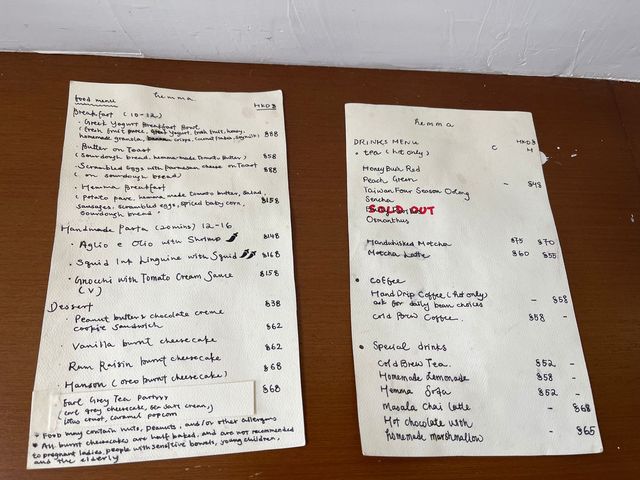 hemma
food menu
HKD$
Breakfast (10-12)
• Greek Yogurt Breakfast Bowl
homemade granola, crisps,
$88
• Butter on Toast
(Sourdough bread, hemma made Tomato Butter)
$58
• Scrambled Eggs with Parmesan cheese on Toast
(on sourdough bread)
$88
• Hemma Breakfast
(Potato pave, hemma made tomato butter, Salad,
sausages, scrambled eggs, spiced baby corn,
sourdough bread
$158
Handmade Pasta (20mins) 12-16
• Aglio e Olio with Shrimp
$148
• Squid Ink Linguine with Squid
$168
• Gnocchi with Tomato Cream Sauce
(V)
$158
Dessert
• Peanut butter & chocolate creme
cookie sandwich
$38
• Vanilla burnt cheesecake
$62
• Rum Raisin burnt cheesecake
$62
• Hanson (oreo burnt cheesecake)
$68
Earl Grey Tea Partyyy
(earl grey cheesecake, sea salt cream,
lotus crust, caramel popcorn
$68
* Food may contain nuts, peanuts, and/or other allergens
* All burnt cheesecakes are half baked, and are not recommended
to pregnant ladies, people with sensitive bowels, young children,
and the elderly
hemma
DRINKS MENU
HKD$
• tea (hot only)
C H
Honey Bush Red
Peach Green
Taiwan Four Season Oolong
- $48
Sencha
SOLD OUT
Osmanthus
Handwhisked Matcha $75 $70
Matcha Latte $60 $55
• coffee
Hand Drip Coffee (hot only) - $58
ask for daily bean choices
Cold Brew Coffee. $58 -
• Special drinks
Cold Brew Tea. $52 -
Homemade Lemonade $58 -
Hemma Soda $52 -
Masala Chai Latte - $68
Hot chocolate with
homemade marshmallow - $65